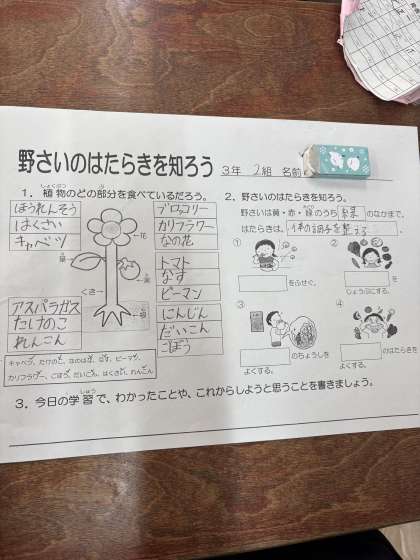 野さいのはたらきを知ろう
3年 2組 名前
1. 植物のどの部分を食べているだろう。
しょくぶつ
ほうれんそう
はくさい
キャベツ
ブロッコリー
カリフラワー
なの花
花
葉
トマト
なす
ピーマン
実
くき
アスパラガス
たけのこ
れんこん
にんじん
だいこん
ごぼう
カリフラワー、ごぼう、だいこん、はくさい、れんこん
2. 野さいのはたらきを知ろう。
野さいは黄・赤・緑のうち のなかまで、
はたらきは、体の調子を整える 。
①
をふせぐ。
②
を
じょうぶにする。
③
のちょうしを
よくする。
④
のはたらきを
よくする。
3. 今日の学習で、わかったことや、これからしようと思うことを書きましょう。